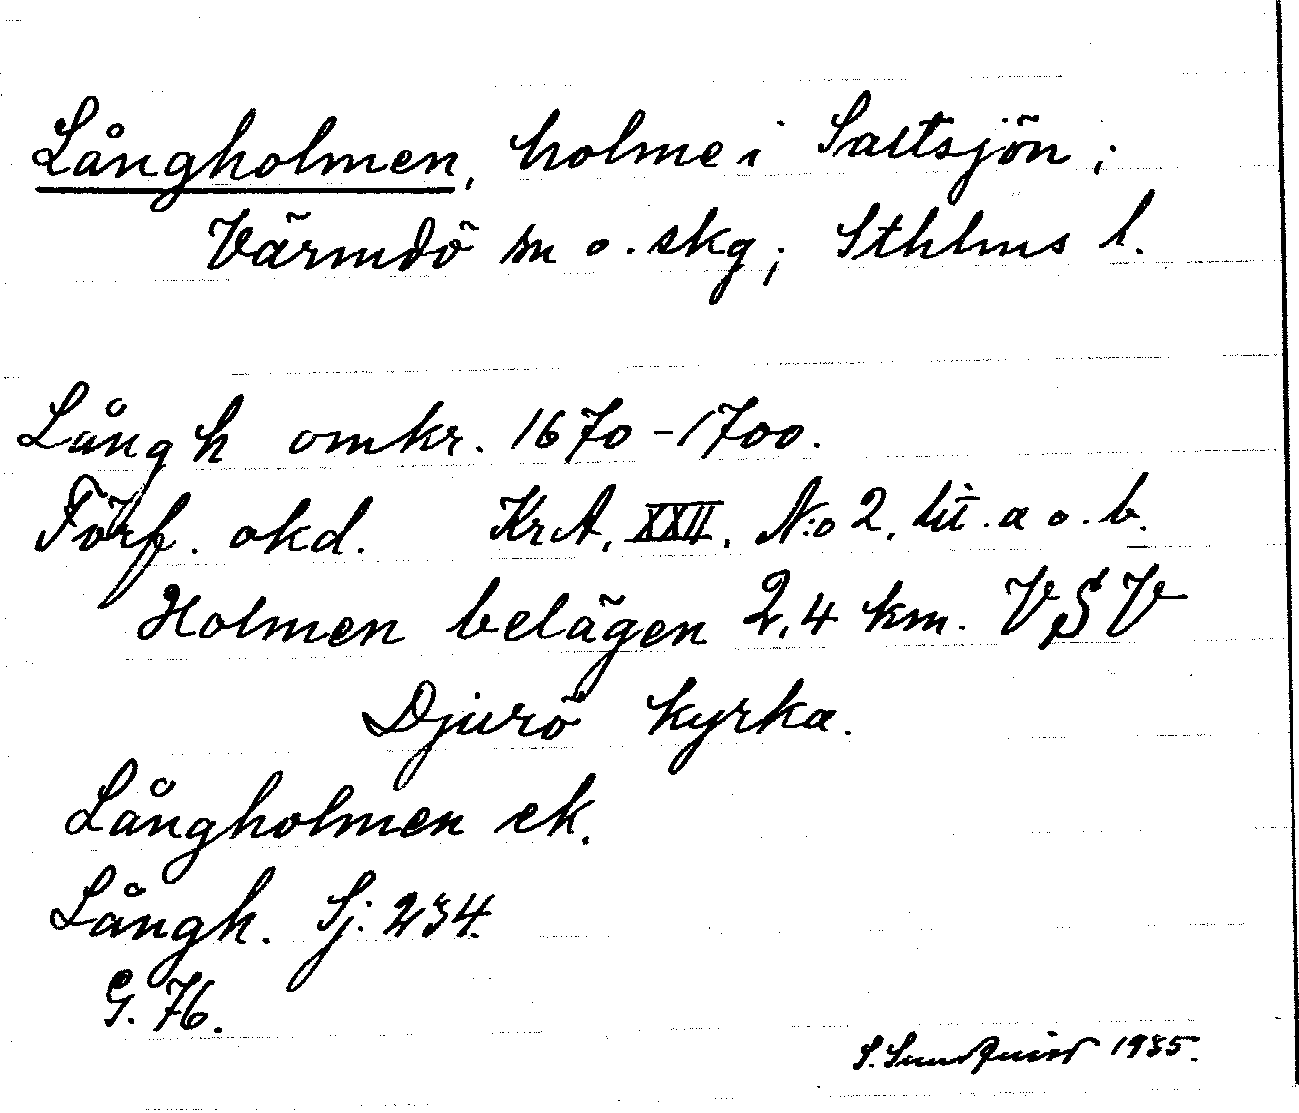 Långholmen, holme i Saltsjön;
Värmdö sn o. skg; Sthlms l.
Långh omkr. 1670-1700.
Förf. okd. KrA, XXII, N:o 2, lit. a o. b.
Holmen belägen 2,4 km. VSV
Djurö kyrka.
Långholmen ek.
Långh. Sj: 234.
G. 76.
S. 1935.